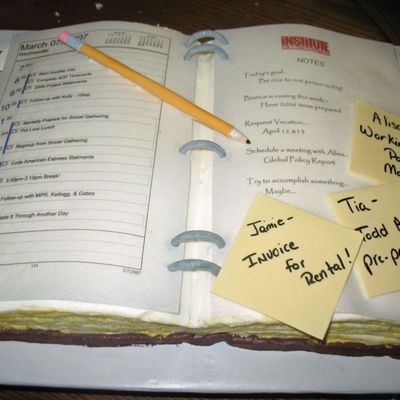 March 07, 2007
Wednesday
7
8 Start Another Day
Complete ADP Timecards
9 200K Project Statements
10 Follow-up with Kelly -
11
Mentally Prepare for Social Gathering
Pot Luck Lunch
Regroup from Social Gathering
Code American Express Statments
3:00pm-3:15pm Break!
Follow-up with MPR, Kellogg, & Gates
Made It Through Another Day
3/7/2007
INSTITUTE
NOTES
Today's goal..
Be nice to one person today!
Bianca is coming this week..
Have 2006 items prepared
Request Vacation...
April 12 &13
Schedule a meeting with Alisa...
Global Policy Report
Try to accomplish something...
Maybe...
Alisa
Working
Jamie-
Invoice
for
Rental!
Tia-
Todd
pre-